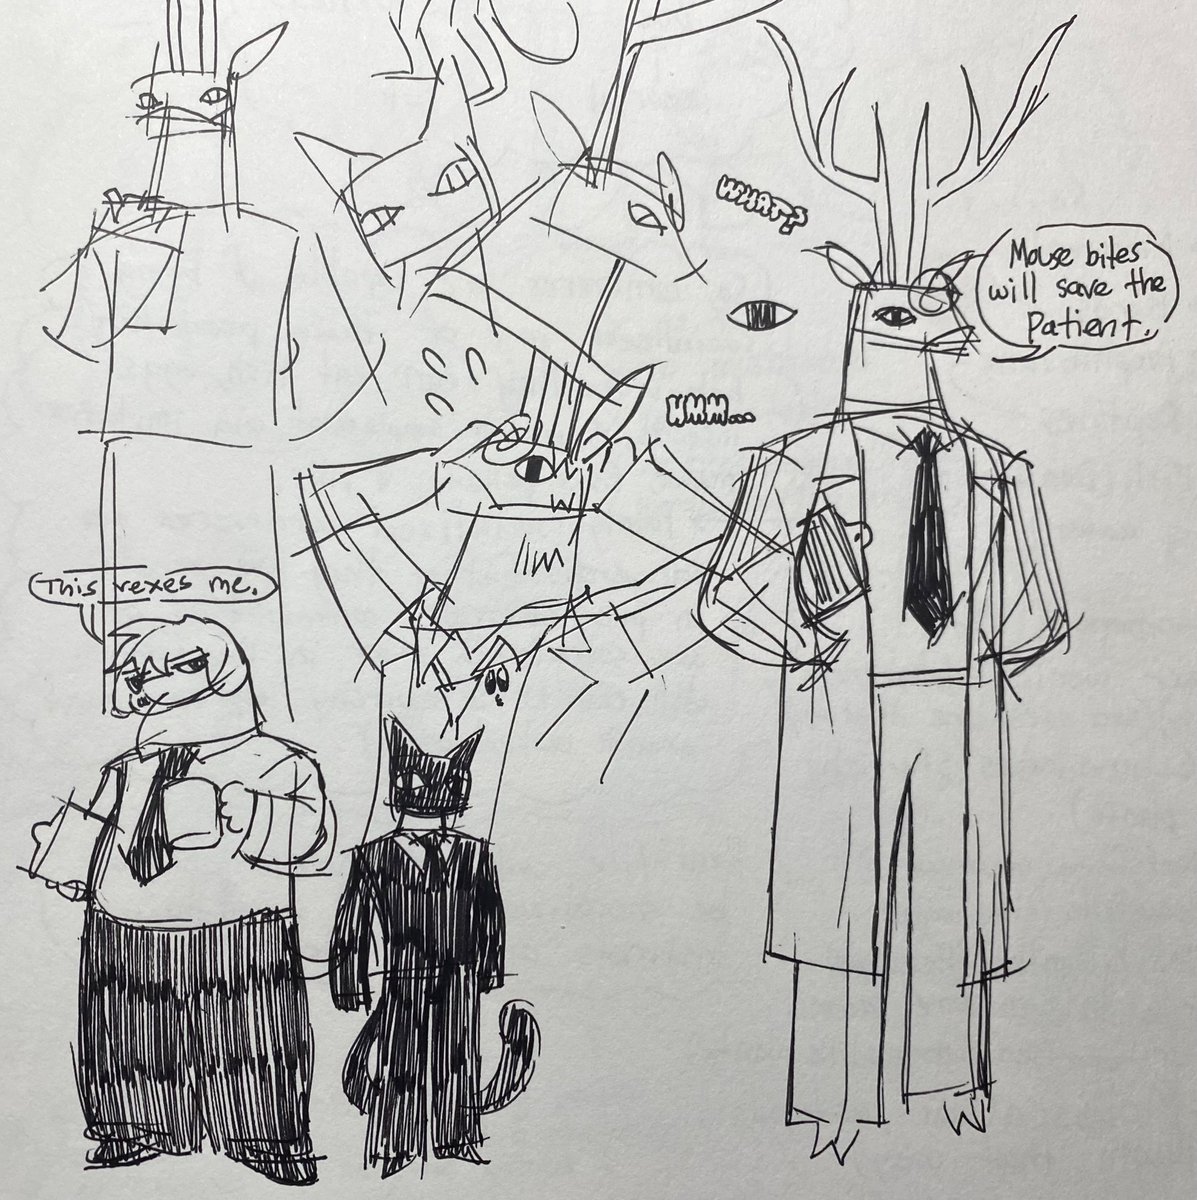 WHAT?
Mouse bites
will save the
patient.
HMM...
This vexes me.